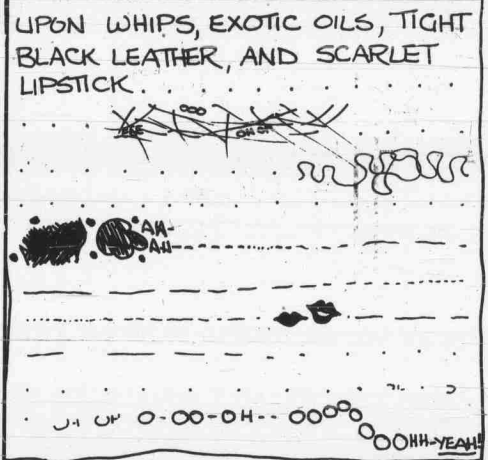 UPON WHIPS, EXOTIC OILS, TIGHT
BLACK LEATHER, AND SCARLET
LIPSTICK.
OOO
EEE
OH OH
AH-
AH
UH UH O-OO-OH-- OOOOO
OOHH-YEAH!